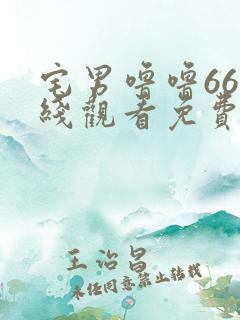 宅男噜噜66
綫觀看免費
王治昌
未经同意禁止转载